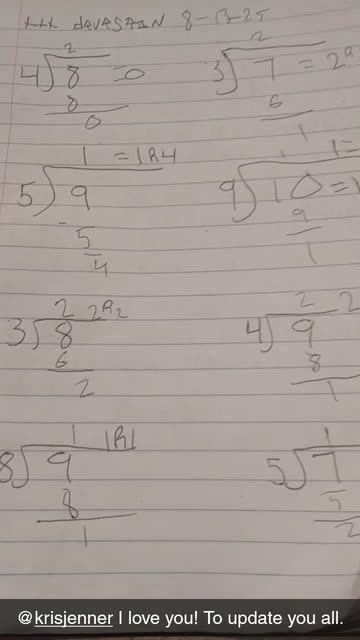 8-13-25
2 2
4)8 =0 3)7 = 2R
8 6
0 1
1 = 1R4 1 1=
5)9 9)10 =1
- 5 9
4 1
2 2R2 2 2
3)8 4)9
6 8
2 1
1 1R1 1
8)9 5)7
8 5
1 2
@krisjenner I love you! To update you all.